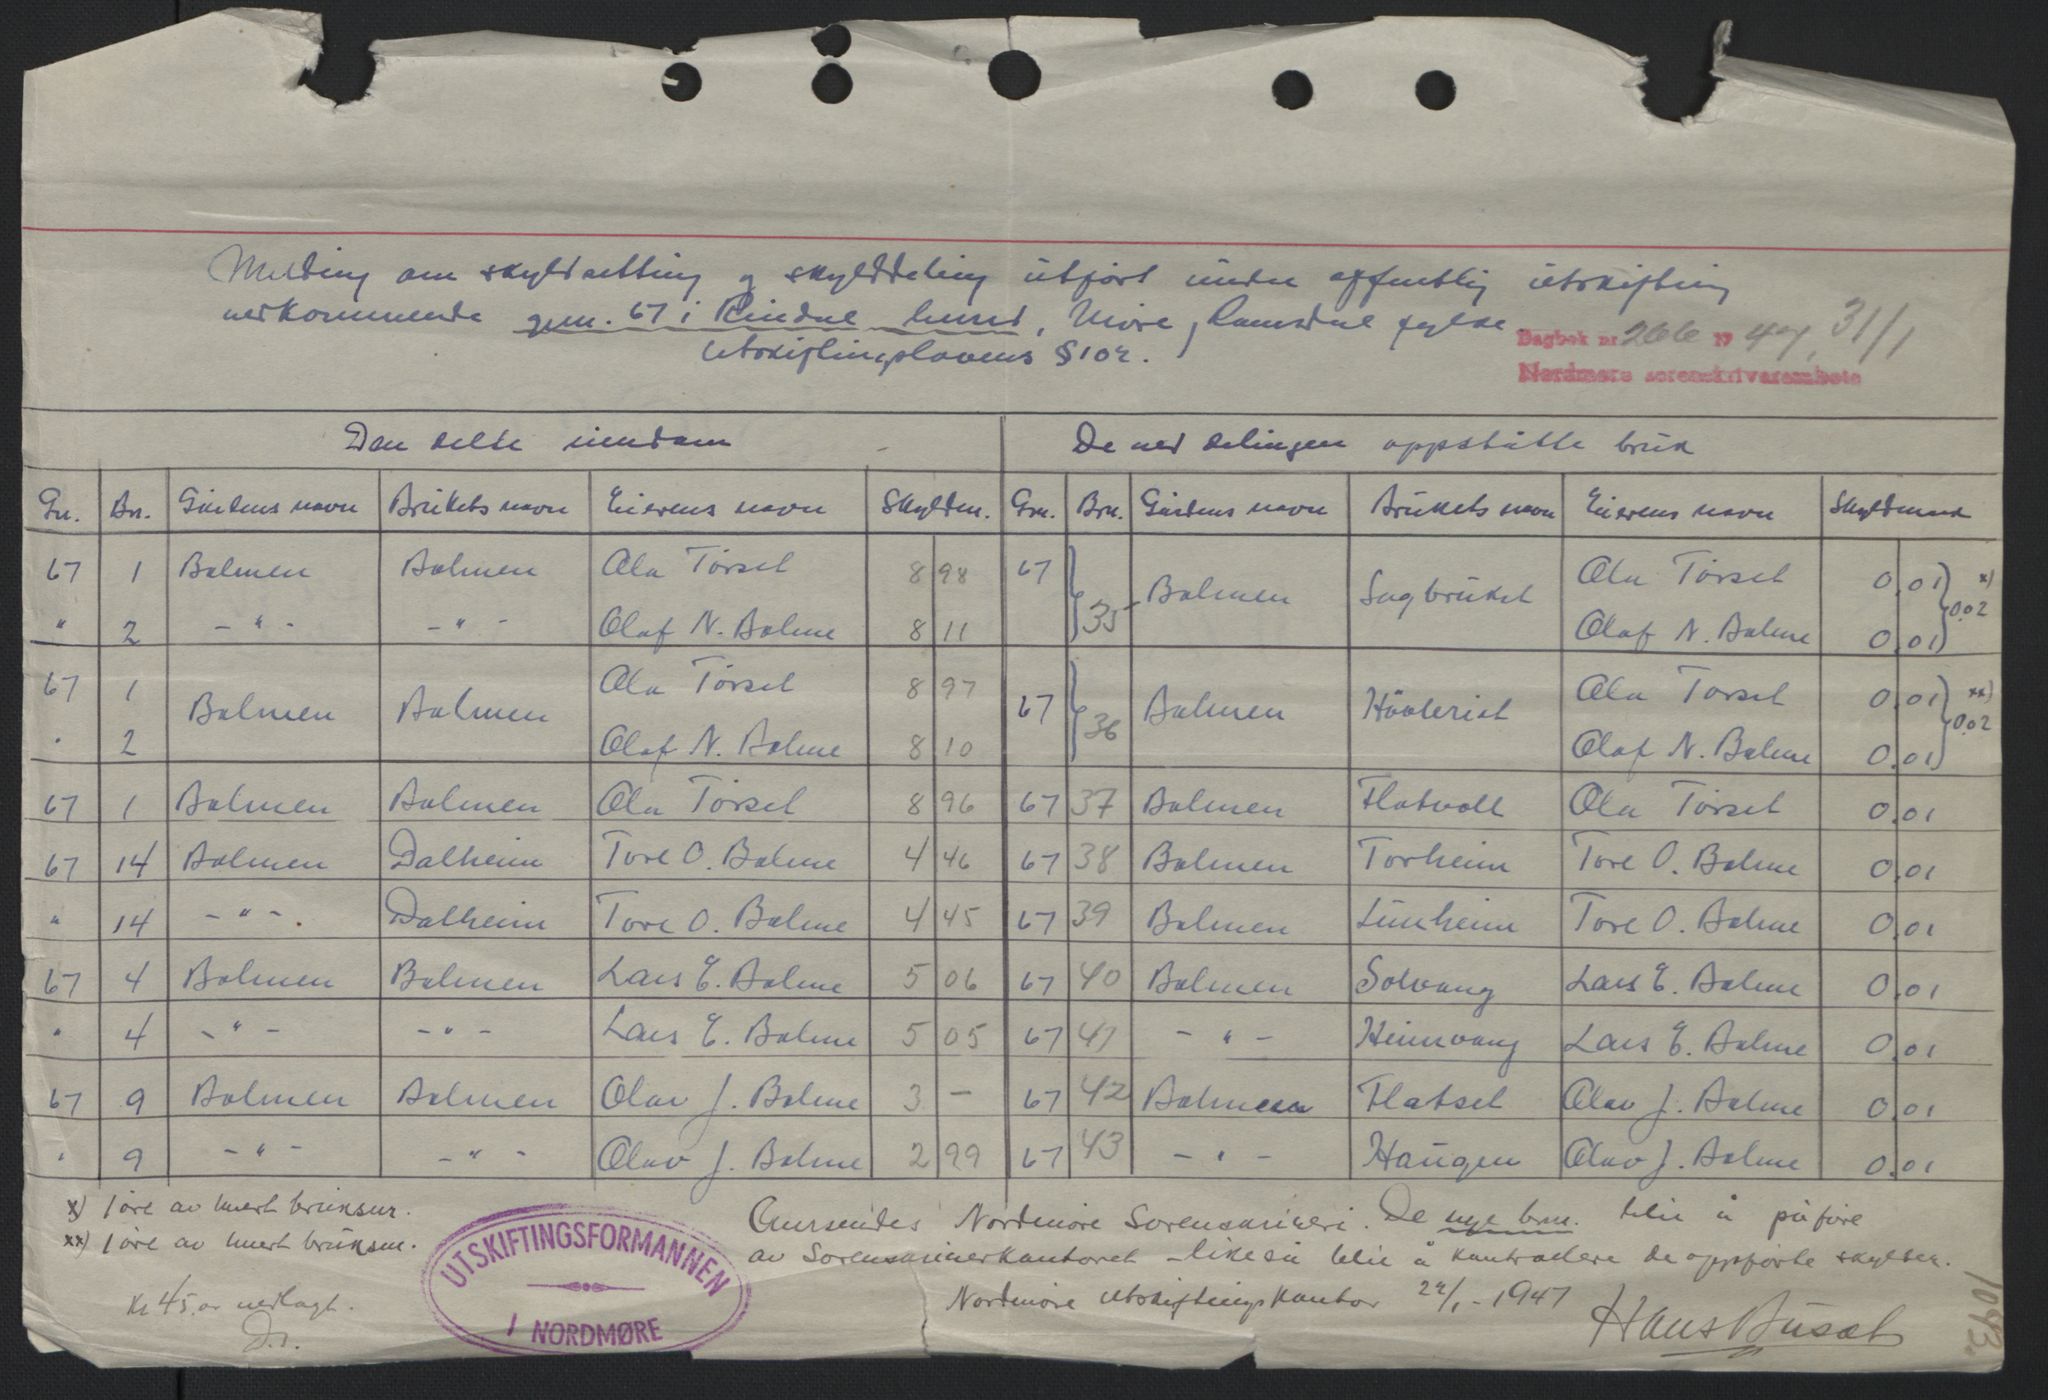 Melding om skyldsetting og skylddeling utført under offentlig utskifting
vedkommende gnr. 67 i Rindal herred, Møre, Romsdal fylke.
Utskiftingslovens § 102.
Dagbok nr. 266 19 47, 31/1
Nordmøre sorenskrivarembete
Den delte eiendom
De ved delingen oppståtte bruk
Gn. Bn. Gårdens navn Brukets navn Eierens navn Skylden. Gnr. Bnr. Gårdens navn Brukets navn Eierens navn Skyldmark
67 1 Bolmen Bolmen Ola Tørset 8 98 67 35 Bolmen Sagbruket Ola Tørset 0,01 x)
" 2 - " - - " - Olaf N. Bolme 8 11 Olaf N. Bolme 0,01 0,02
67 1 Bolmen Bolmen Ola Tørset 8 97 67 36 Bolmen Ola Tørset 0,01 xx)
" 2 Olaf N. Bolme 8 10 Olaf N. Bolme 0,01 0,02
67 1 Bolmen Bolmen Ola Tørset 8 96 67 37 Bolmen Flatvoll Ola Tørset 0,01
67 14 Bolmen Dalheim Tore O. Bolme 4 46 67 38 Bolmen Torheim Tore O. Bolme 0,01
" 14 - " - Dalheim Tore O. Bolme 4 45 67 39 Bolmen Lunheim Tore O. Bolme 0,01
67 4 Bolmen Bolmen Lars E. Bolme 5 06 67 40 Bolmen Solvang Lars E. Bolme 0,01
" 4 - " - - " - Lars E. Bolme 5 05 67 41 - " - Heimvang Lars E. Bolme 0,01
67 9 Bolmen Bolmen Olav J. Bolme 3 - 67 42 Bolmen Flatset Olav J. Bolme 0,01
" 9 - " - - " - Olav J. Bolme 2 99 67 43 - " - Haugen Olav J. Bolme 0,01
x) 1 øre av hvert bruksnr.
xx) 1 øre av hvert bruksnr.
Kr 45.00 vedlagt.
D.s.
UTSKIFTINGSFORMANNEN
I NORDMØRE
Oversendes Nordmøre Sorenskriveri. De nye bnr. blir å påføre
av Sorenskriverkontoret - likeså blir å kontrollere de oppførte skylder.
Nordmøre Utskiftingskontor 22/1 - 1947
Hans Busæt
1093.